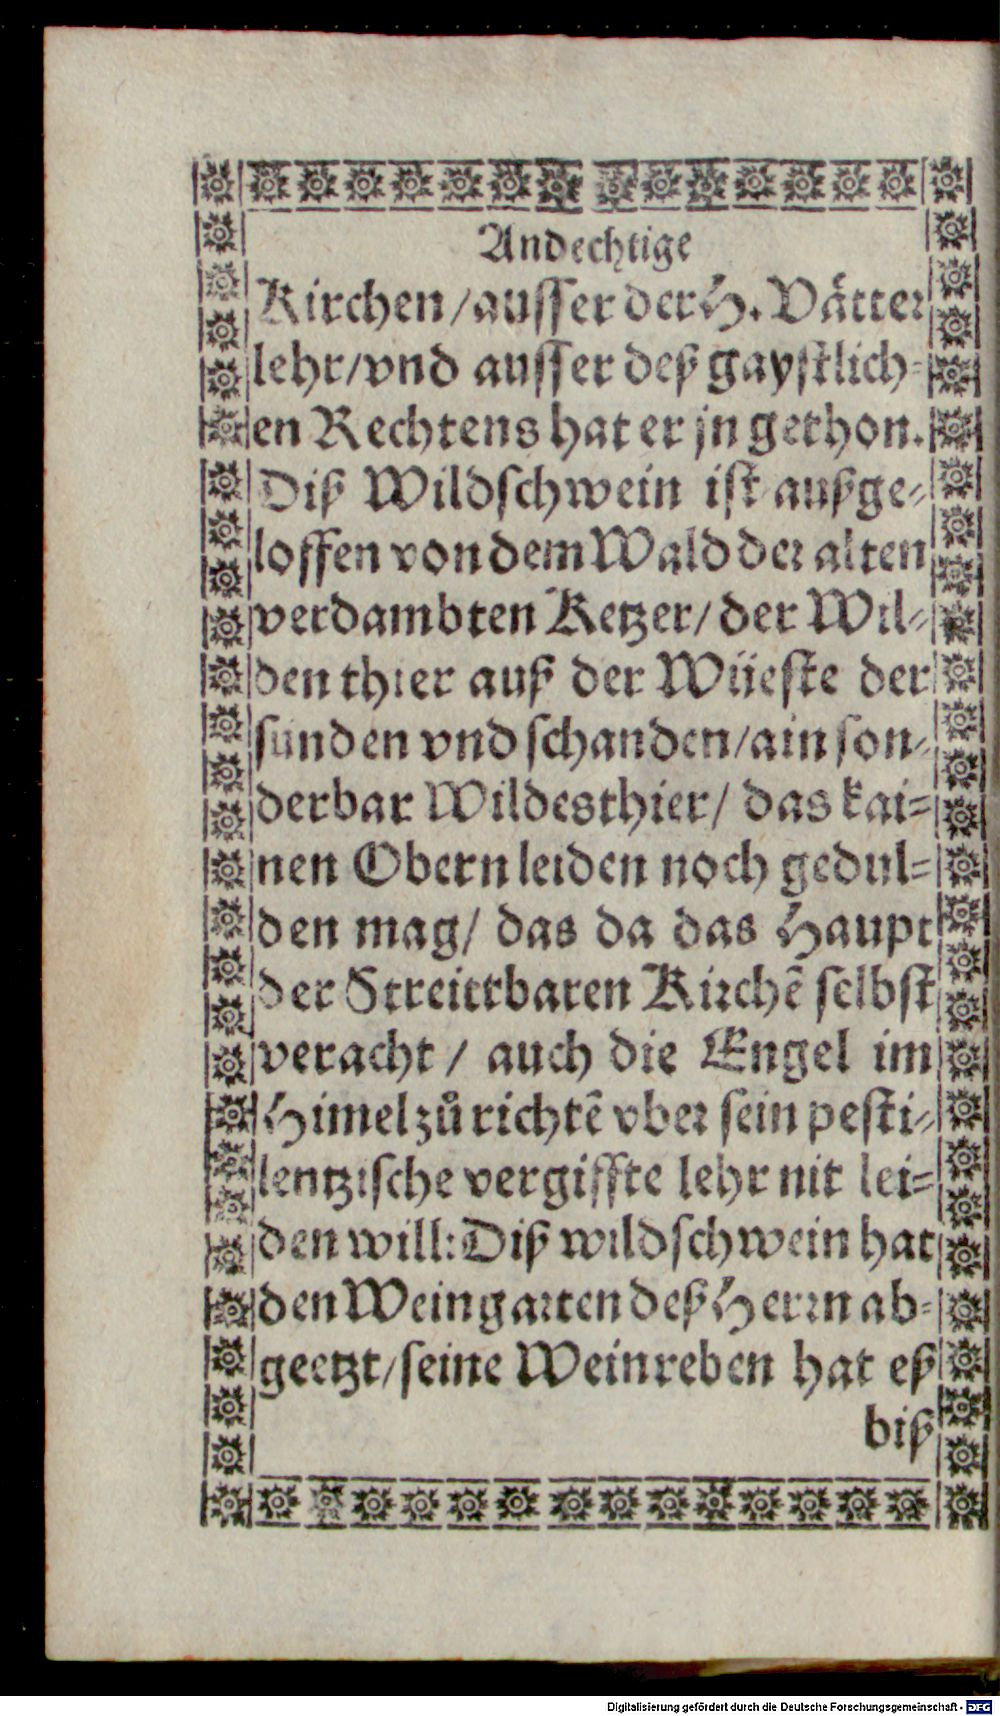 Andechtige
Kirchen/ausser der H. Vätter
lehr/vnd ausser deß gaystlich-
en Rechtens hat er jn gethon.
Diß Wildschwein ist außge-
loffen von dem Wald der alten
verdambten Ketzer/ der Wil-
den thier auß der Wüeste der
sünden vnd schanden/ain son-
derbar Wildesthier/ das kai-
nen Obern leiden noch gedul-
den mag/ das da das Haupt
der Streittbaren Kirchẽ selbst
veracht / auch die Engel im
Himel zů richtẽ vber sein pesti-
lentzische vergiffte lehr nit lei-
den will: Diß wildschwein hat
den Weingarten deß Herrn ab-
geetzt/seine Weinreben hat eß
biß
Digitalisierung gefördert durch die Deutsche Forschungsgemeinschaft - DFG